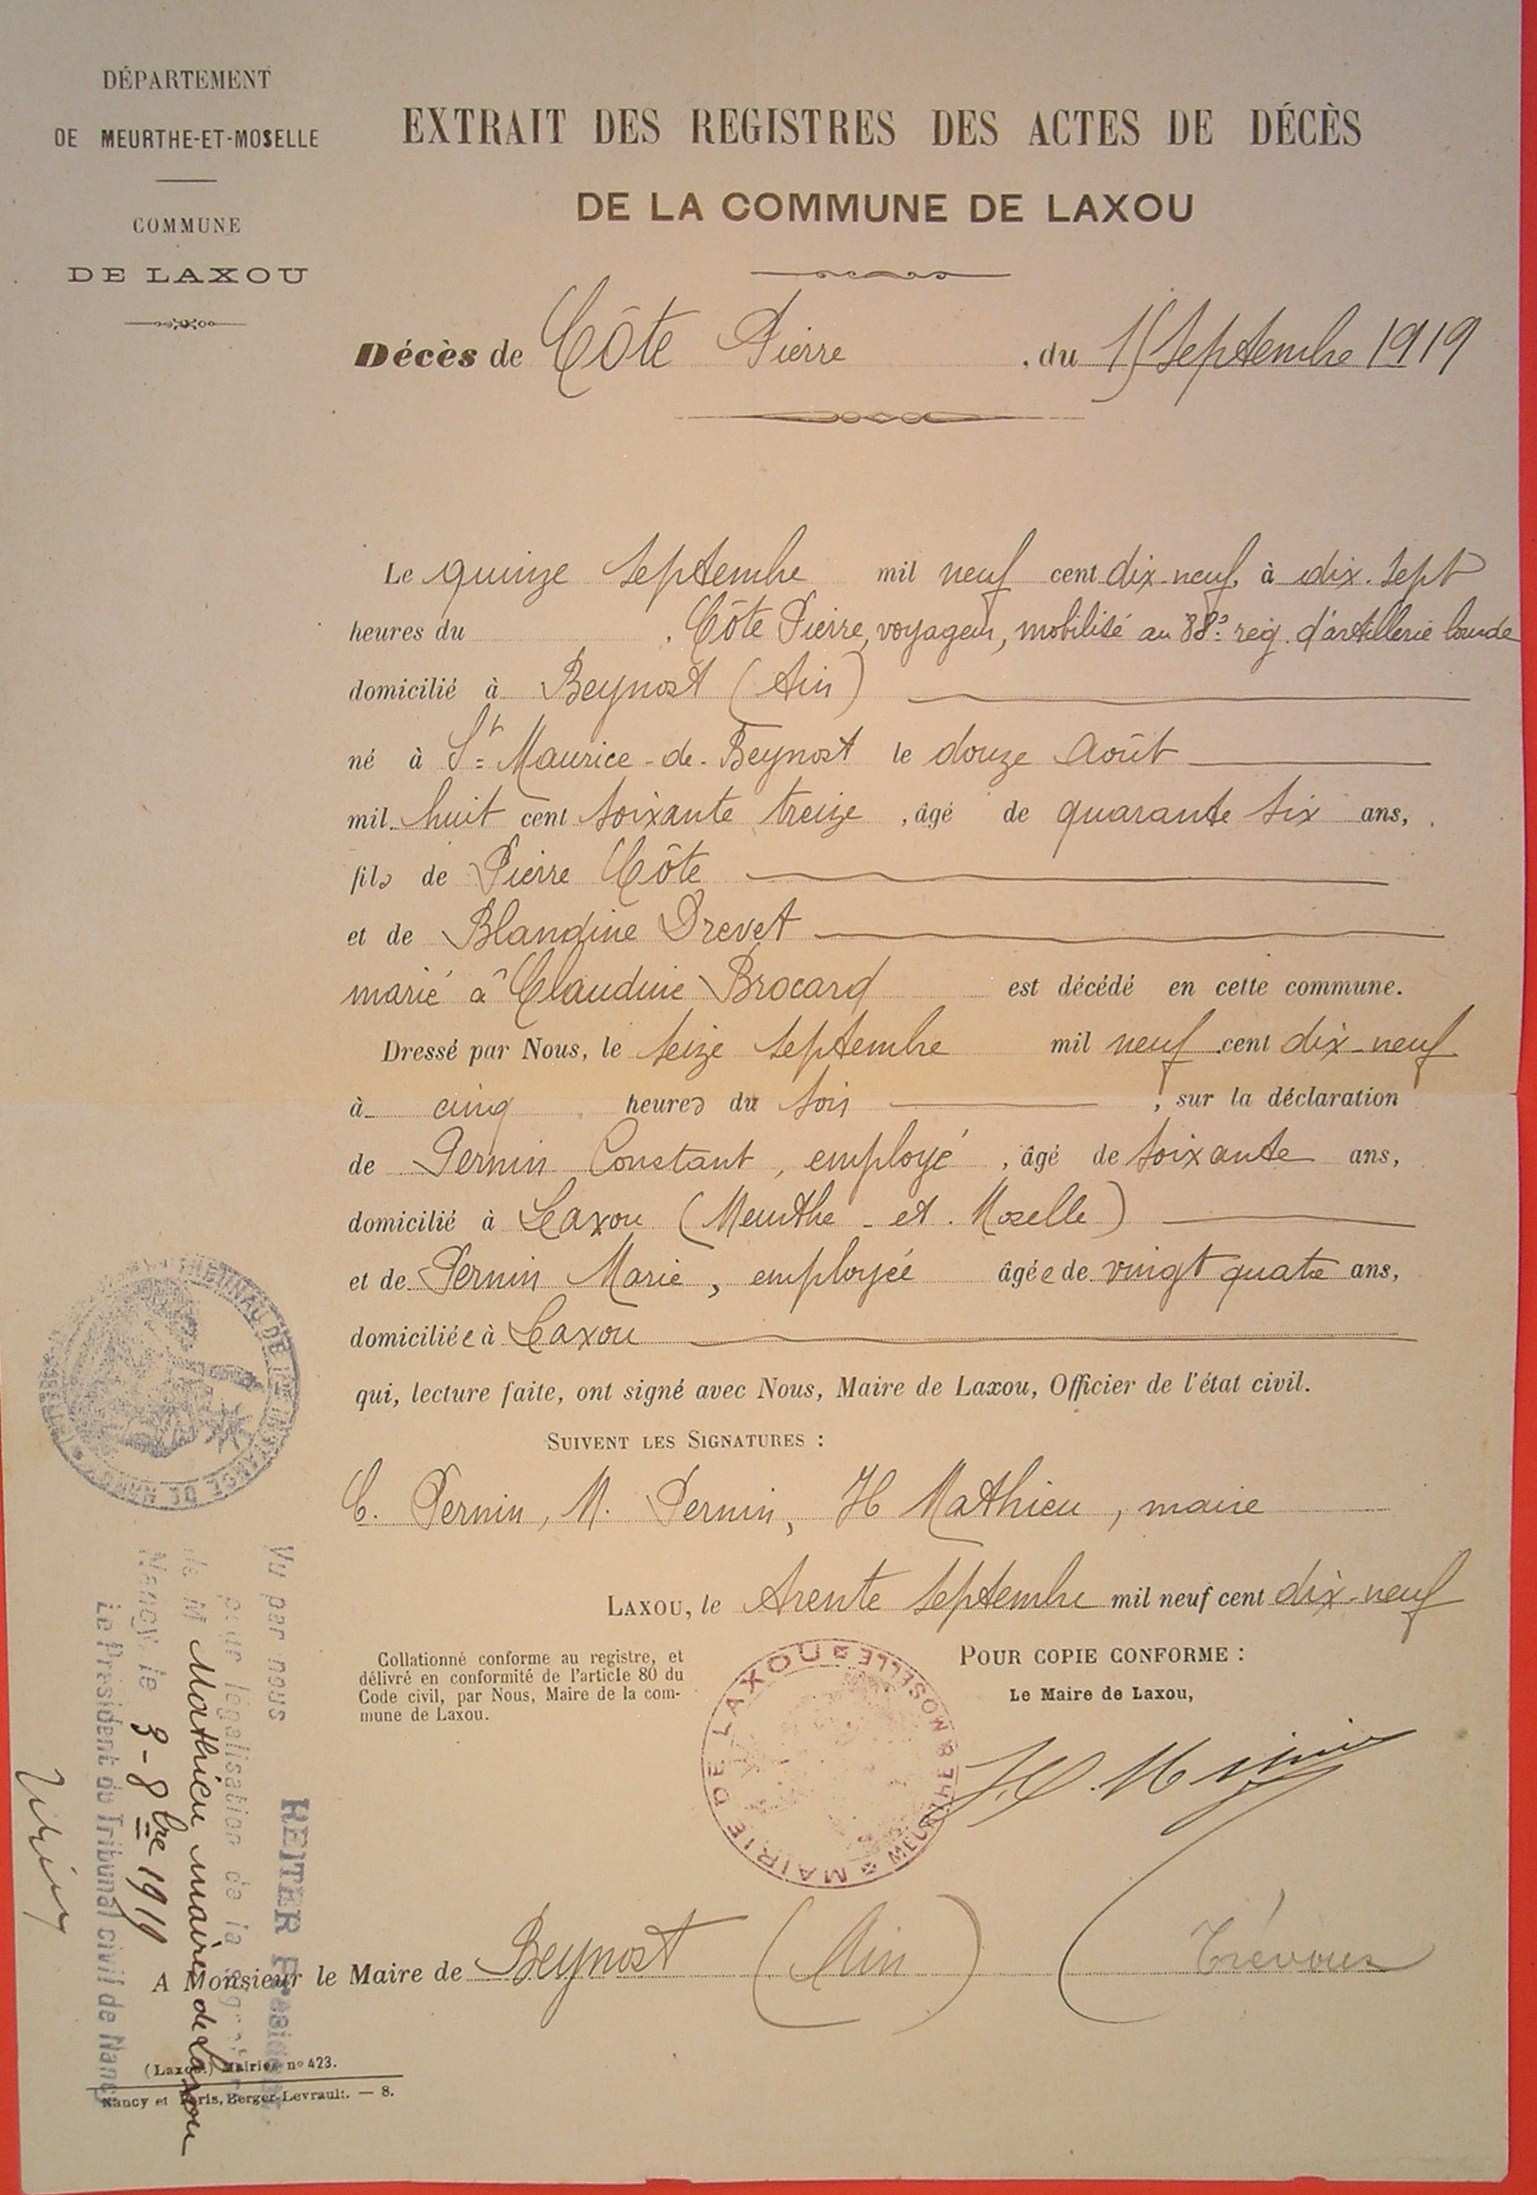 DÉPARTEMENT
DE MEURTHE-ET-MOSELLE
COMMUNE
DE LAXOU
EXTRAIT DES REGISTRES DES ACTES DE DÉCÈS
DE LA COMMUNE DE LAXOU
Décès de Côte Pierre, du 15 Septembre 1919
Le quinze Septembre mil neuf cent dix-neuf, à dix-sept
heures du , Côte Pierre, voyageur, mobilisé au 88e reg. d'artillerie lourde
domicilié à Beynost (Ain)
né à St Maurice-de-Beynost le douze Août
mil huit cent soixante treize, âgé de quarante six ans,
fils de Pierre Côte
et de Blandine Drevet
marié à Claudine Brocard est décédé en cette commune.
Dressé par Nous, le seize septembre mil neuf cent dix-neuf
à cinq heures du soir, sur la déclaration
de Pernin Constant, employé, âgé de soixante ans,
domicilié à Laxou (Meurthe-et-Moselle)
et de Pernin Marie, employée âgée de vingt quatre ans,
domiciliée à Laxou
qui, lecture faite, ont signé avec Nous, Maire de Laxou, Officier de l'état civil.
SUIVENT LES SIGNATURES :
C. Pernin, M. Pernin, H Mathieu, maire
LAXOU, le trente septembre mil neuf cent dix-neuf
Collationné conforme au registre, et
délivré en conformité de l'article 80 du
Code civil, par Nous, Maire de la com-
mune de Laxou.
POUR COPIE CONFORME :
Le Maire de Laxou,
MAIRIE DE LAXOU MEURTHE & MOSELLE
TRIBUNAL DE 1re INSTANCE DE NANCY
Vu par nous REITER Président
pour légalisation de la
de M Mathieu maire de Laxou
Nancy, le 3-8bre 1919
Le Président du Tribunal civil de Nancy
A Monsieur le Maire de Beynost (Ain) (Trévoux
(Laxou.) Mairies nº 423.
Nancy et Paris, Berger-Levrault. — 8.